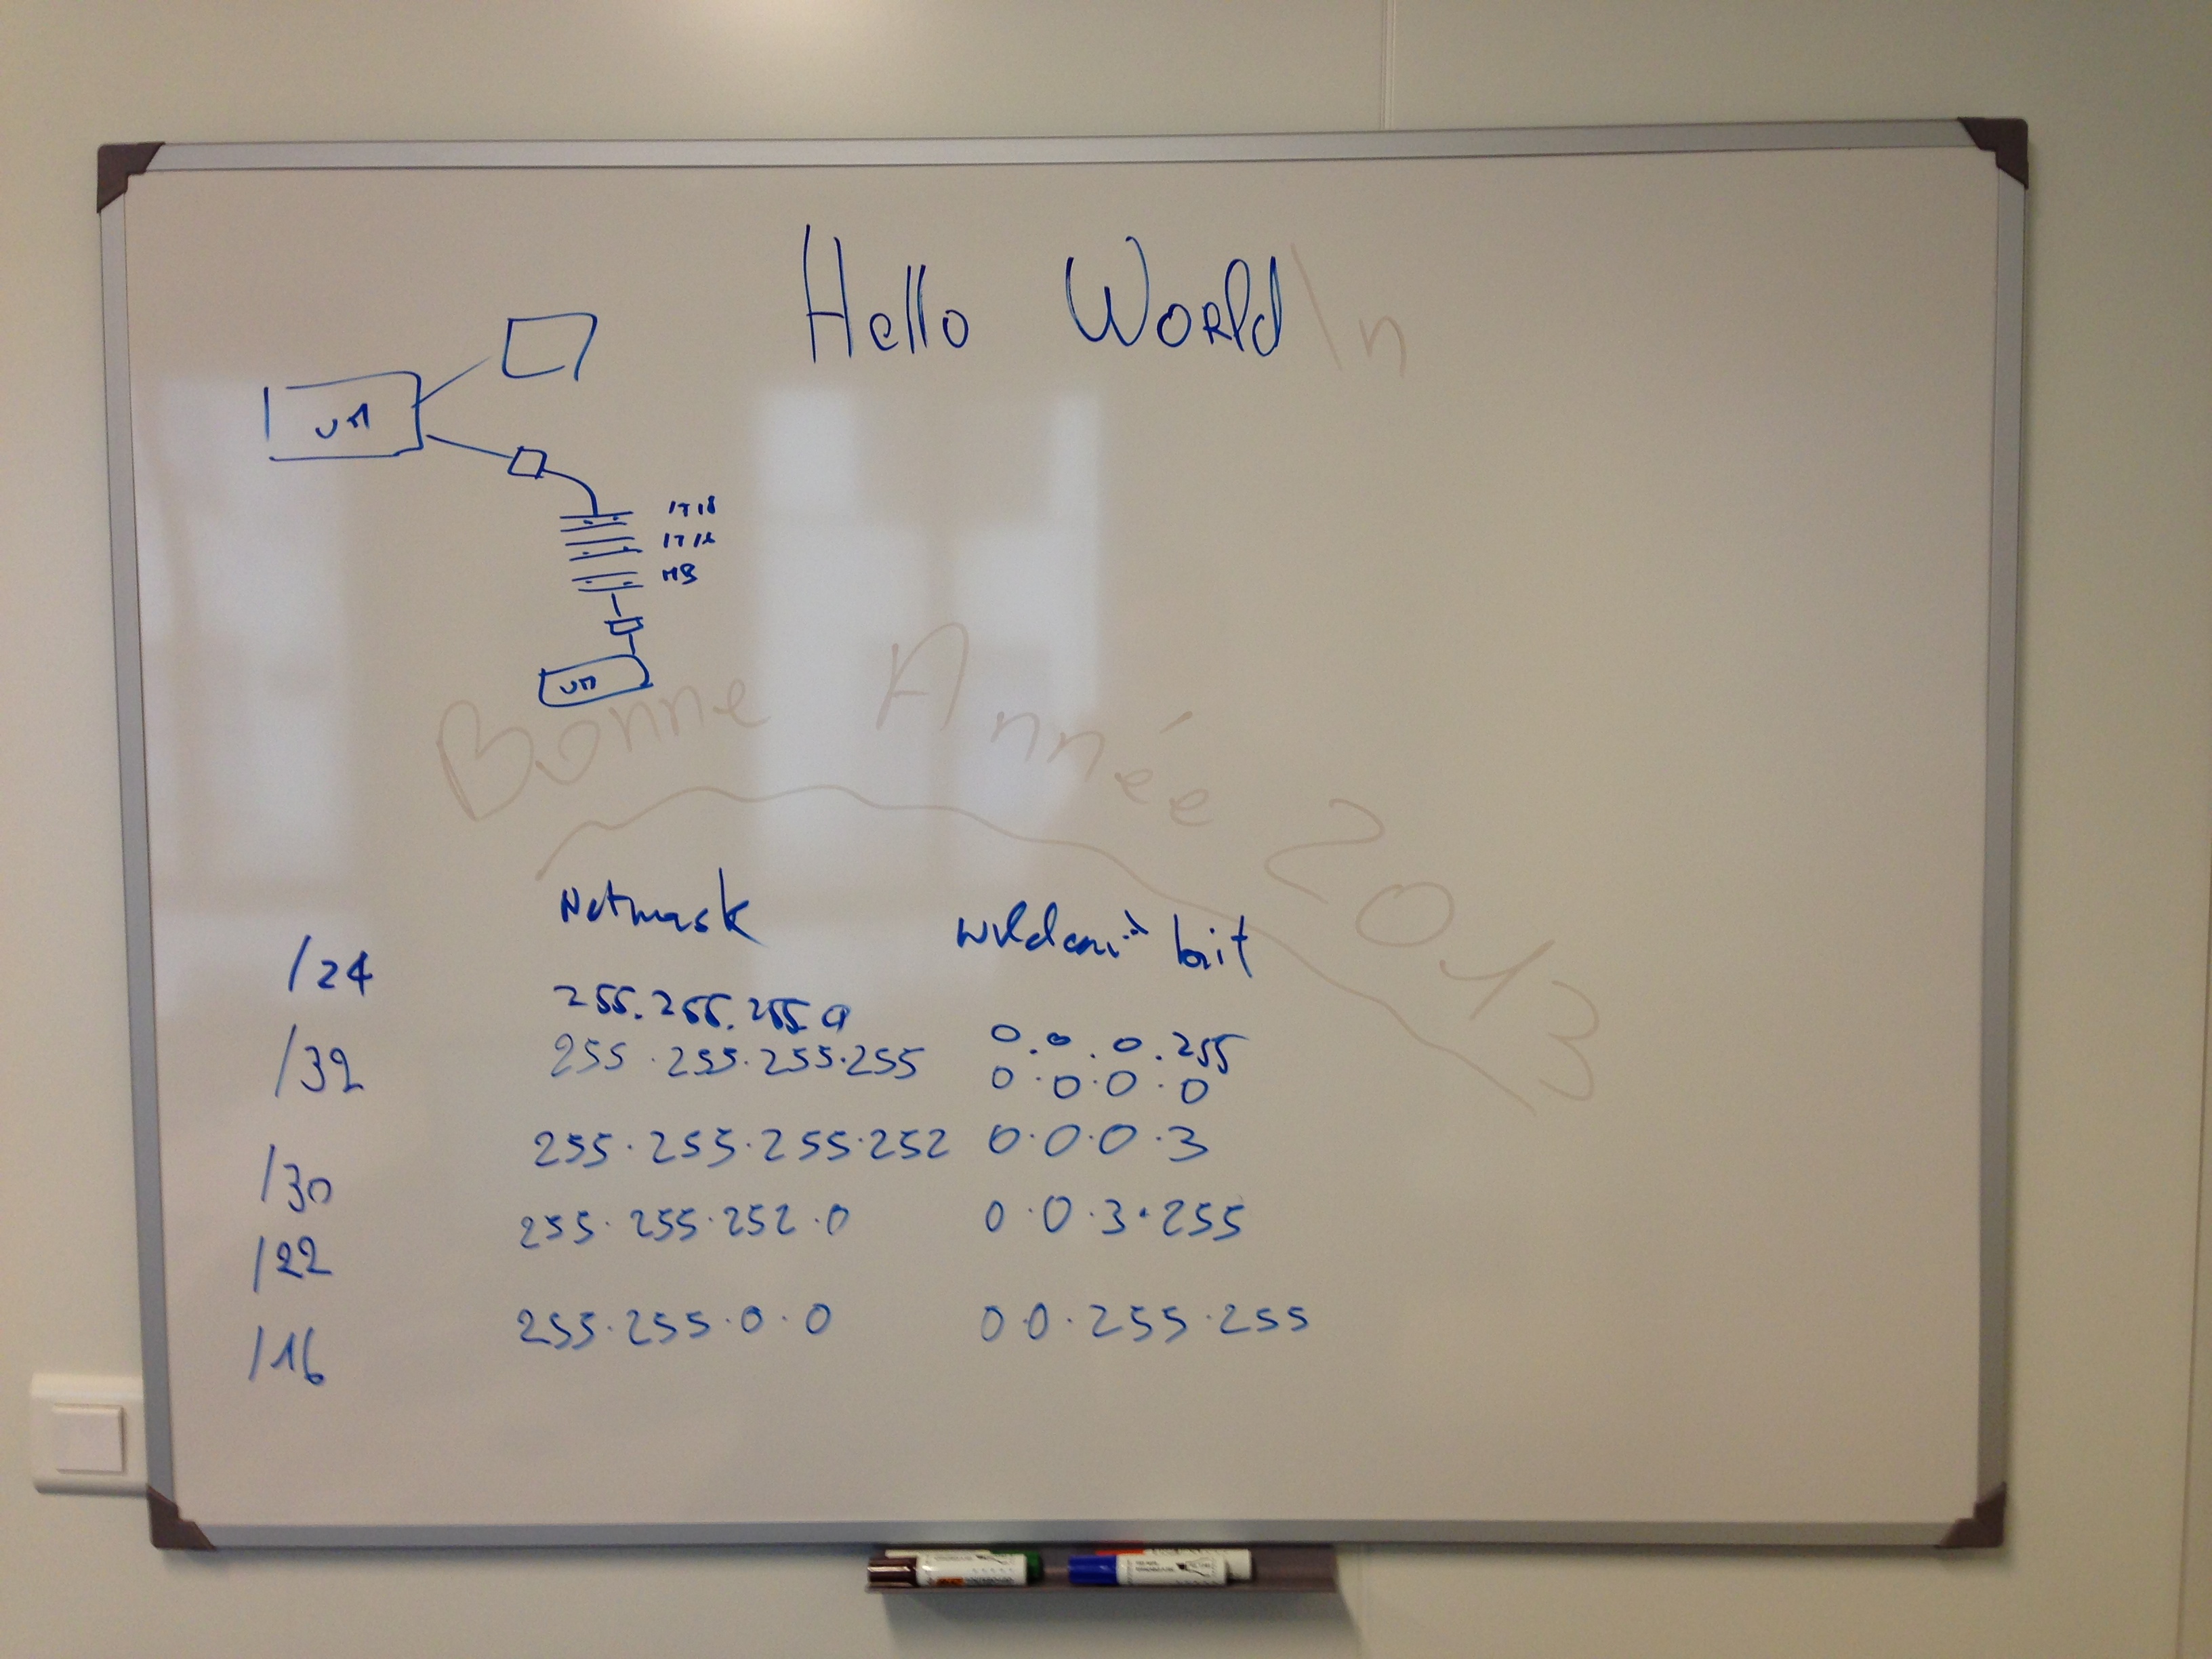 Hello World\n
VM
MB
VM
Bonne Année 2013
Netmask wildcard bit
/24 255.255.255.0 0.0.0.255
/32 255.255.255.255 0.0.0.0
/30 255.255.255.252 0.0.0.3
/22 255.255.252.0 0.0.3.255
/16 255.255.0.0 0.0.255.255